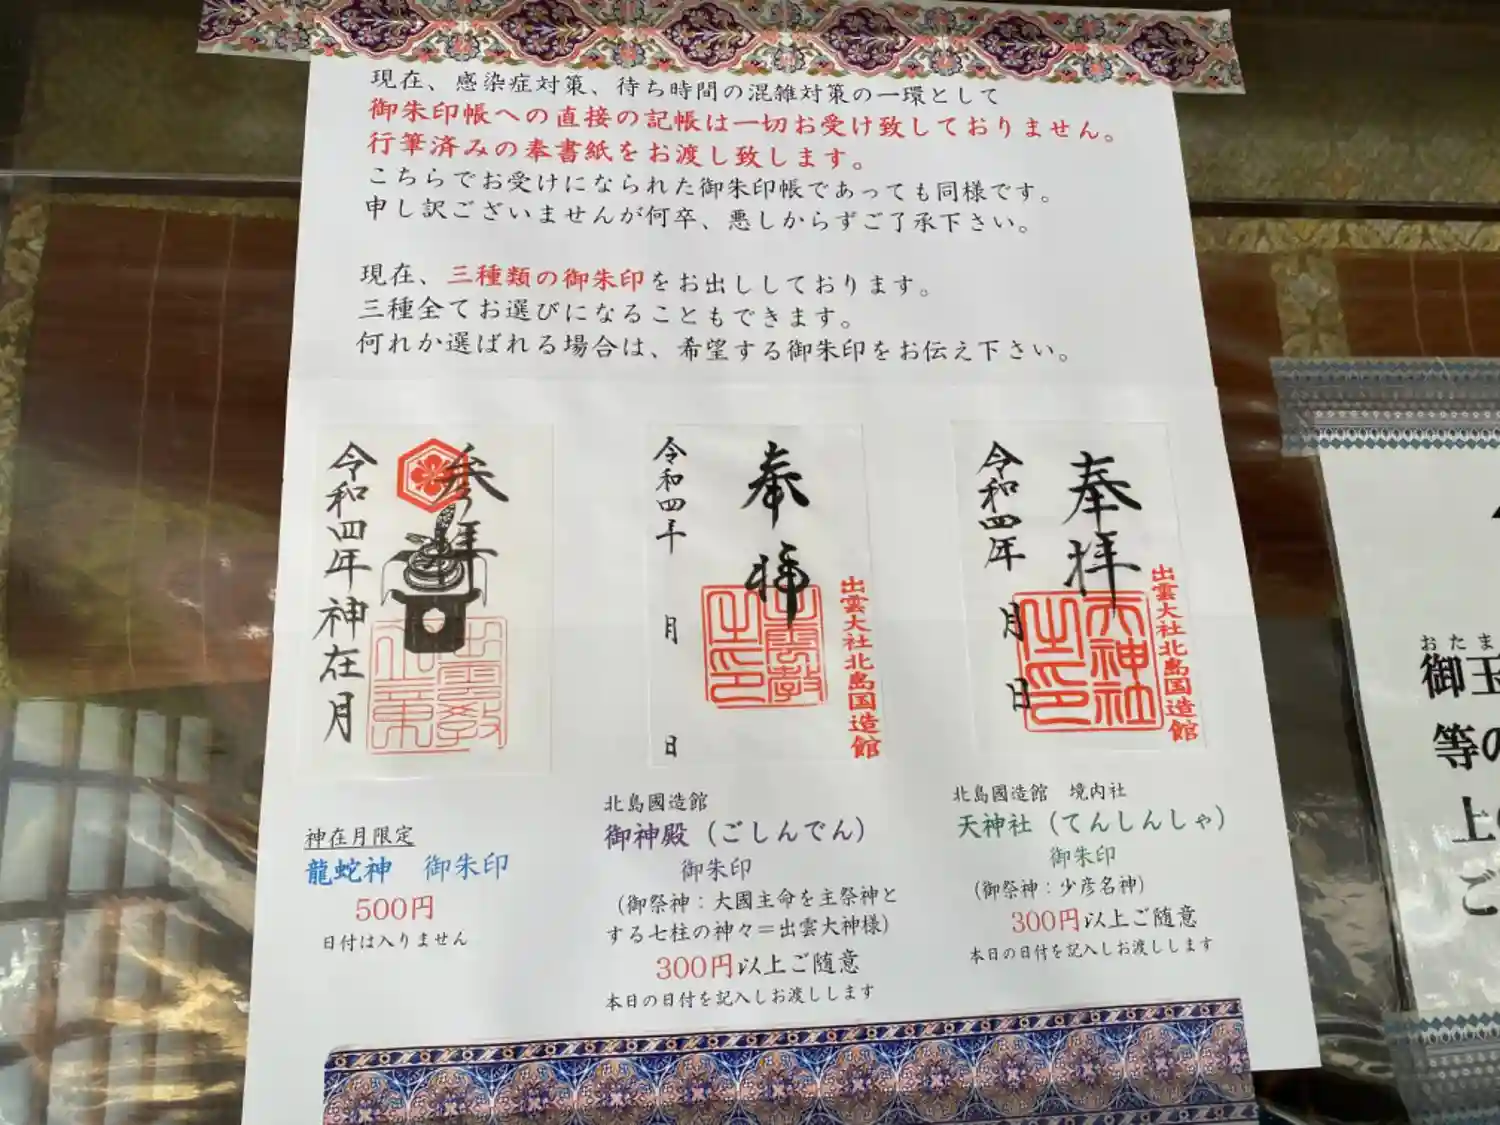 現在、感染症対策、待ち時間の混雑対策の一環として
御朱印帳への直接の記帳は一切お受け致しておりません。
行筆済みの奉書紙をお渡し致します。
こちらでお受けになられた御朱印帳であっても同様です。
申し訳ございませんが何卒、悪しからずご了承下さい。
現在、三種類の御朱印をお出ししております。
三種全てお選びになることもできます。
何れか選ばれる場合は、希望する御朱印をお伝え下さい。
参拝
令和四年神在月
奉拝
令和四年 月 日
出雲教
之印
出雲大社北島国造館
奉拝
令和四年 月 日
天神社
之印
出雲大社北島国造館
神在月限定
龍蛇神 御朱印
500円
日付は入りません
北島國造館
御神殿（ごしんでん）
御朱印
（御祭神：大國主命を主祭神と
する七柱の神々＝出雲大神様）
300円以上ご随意
本日の日付を記入しお渡しします
北島國造館 境内社
天神社（てんしんしゃ）
御朱印
（御祭神：少彦名神）
300円以上ご随意
本日の日付を記入しお渡しします
おたま
御玉
等の
上
ご